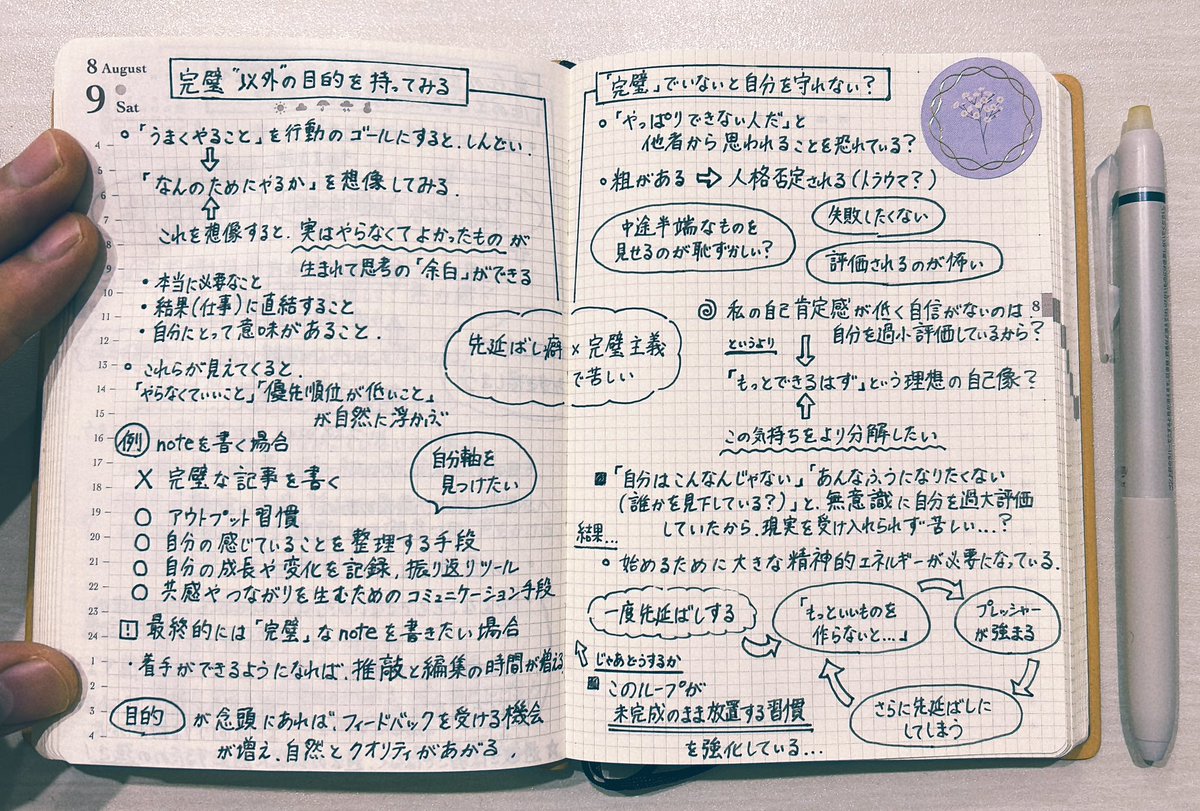 8 August
9 Sat
完璧"以外"の目的を持ってみる
○「うまくやること」を行動のゴールにすると、しんどい.
「なんのためにやるか」を想像してみる.
これを想像すると、実はやらなくてよかったものが
生まれて思考の「余白」ができる
・本当に必要なこと
・結果(仕事)に直結すること
・自分にとって意味があること.
○これらが見えてくると、
「やらなくていいこと」「優先順位が低いこと」
が自然に浮かぶ
例 noteを書く場合
X 完璧な記事を書く
○ アウトプット習慣
○ 自分の感じていることを整理する手段
○ 自分の成長や変化を記録、振り返りツール
○ 共感やつながりを生むためのコミュニケーション手段
自分軸を
見つけたい
! 最終的には「完璧」なnoteを書きたい場合
・着手ができるようになれば、推敲と編集の時間が増える
目的 が念頭にあれば、フィードバックを受ける機会
が増え、自然とクオリティがあがる.
先延ばし癖×完璧主義
で苦しい
「完璧」でいないと自分を守れない?
○「やっぱりできない人だ」と
他者から思われることを恐れている?
○粗がある ⇨ 人格否定される(トラウマ?)
中途半端なものを
見せるのが恥ずかしい?
失敗したくない
評価されるのが怖い
私の自己肯定感が低く自信がないのは、
自分を過小評価しているから?
というより
「もっとできるはず」という理想の自己像?
この気持ちをより分解したい
「自分はこんなんじゃない」「あんなふうになりたくない
(誰かを見下している?)」と、無意識に自分を過大評価
していたから、現実を受け入れられず苦しい...?
結果...
○始めるために大きな精神的エネルギーが必要になっている.
一度先延ばしする
「もっといいものを
作らないと...」
プレッシャー
が強まる
さらに先延ばしに
してしまう
じゃあどうするか
このループが
未完成のまま放置する習慣
を強化している...
8
4
5
6
7
8
9
10
11
12
13
14
15
16
17
18
19
20
21
22
23
24
1
2
3
4